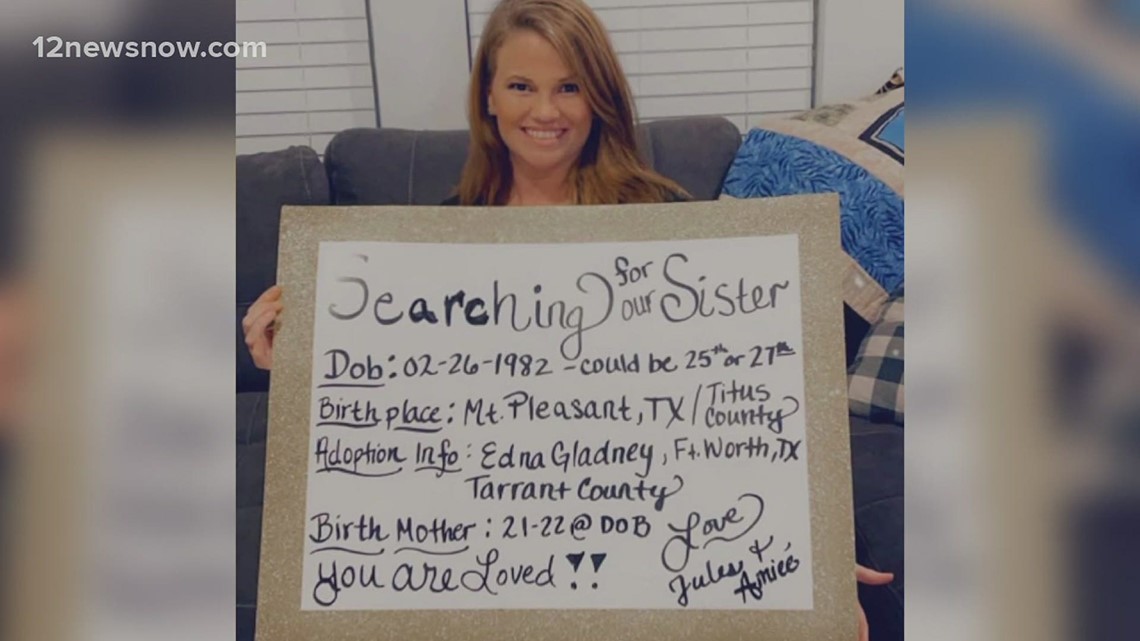 12newsnow.com
Searching for our Sister
Dob: 02-26-1982 - could be 25th or 27th
Birthplace: Mt. Pleasant, TX / Titus County
Adoption Info: Edna Gladney, Ft. Worth, TX
Tarrant County
Birth Mother: 21-22 @ DOB
You are Loved !!
Love,
Jules &
Amiee